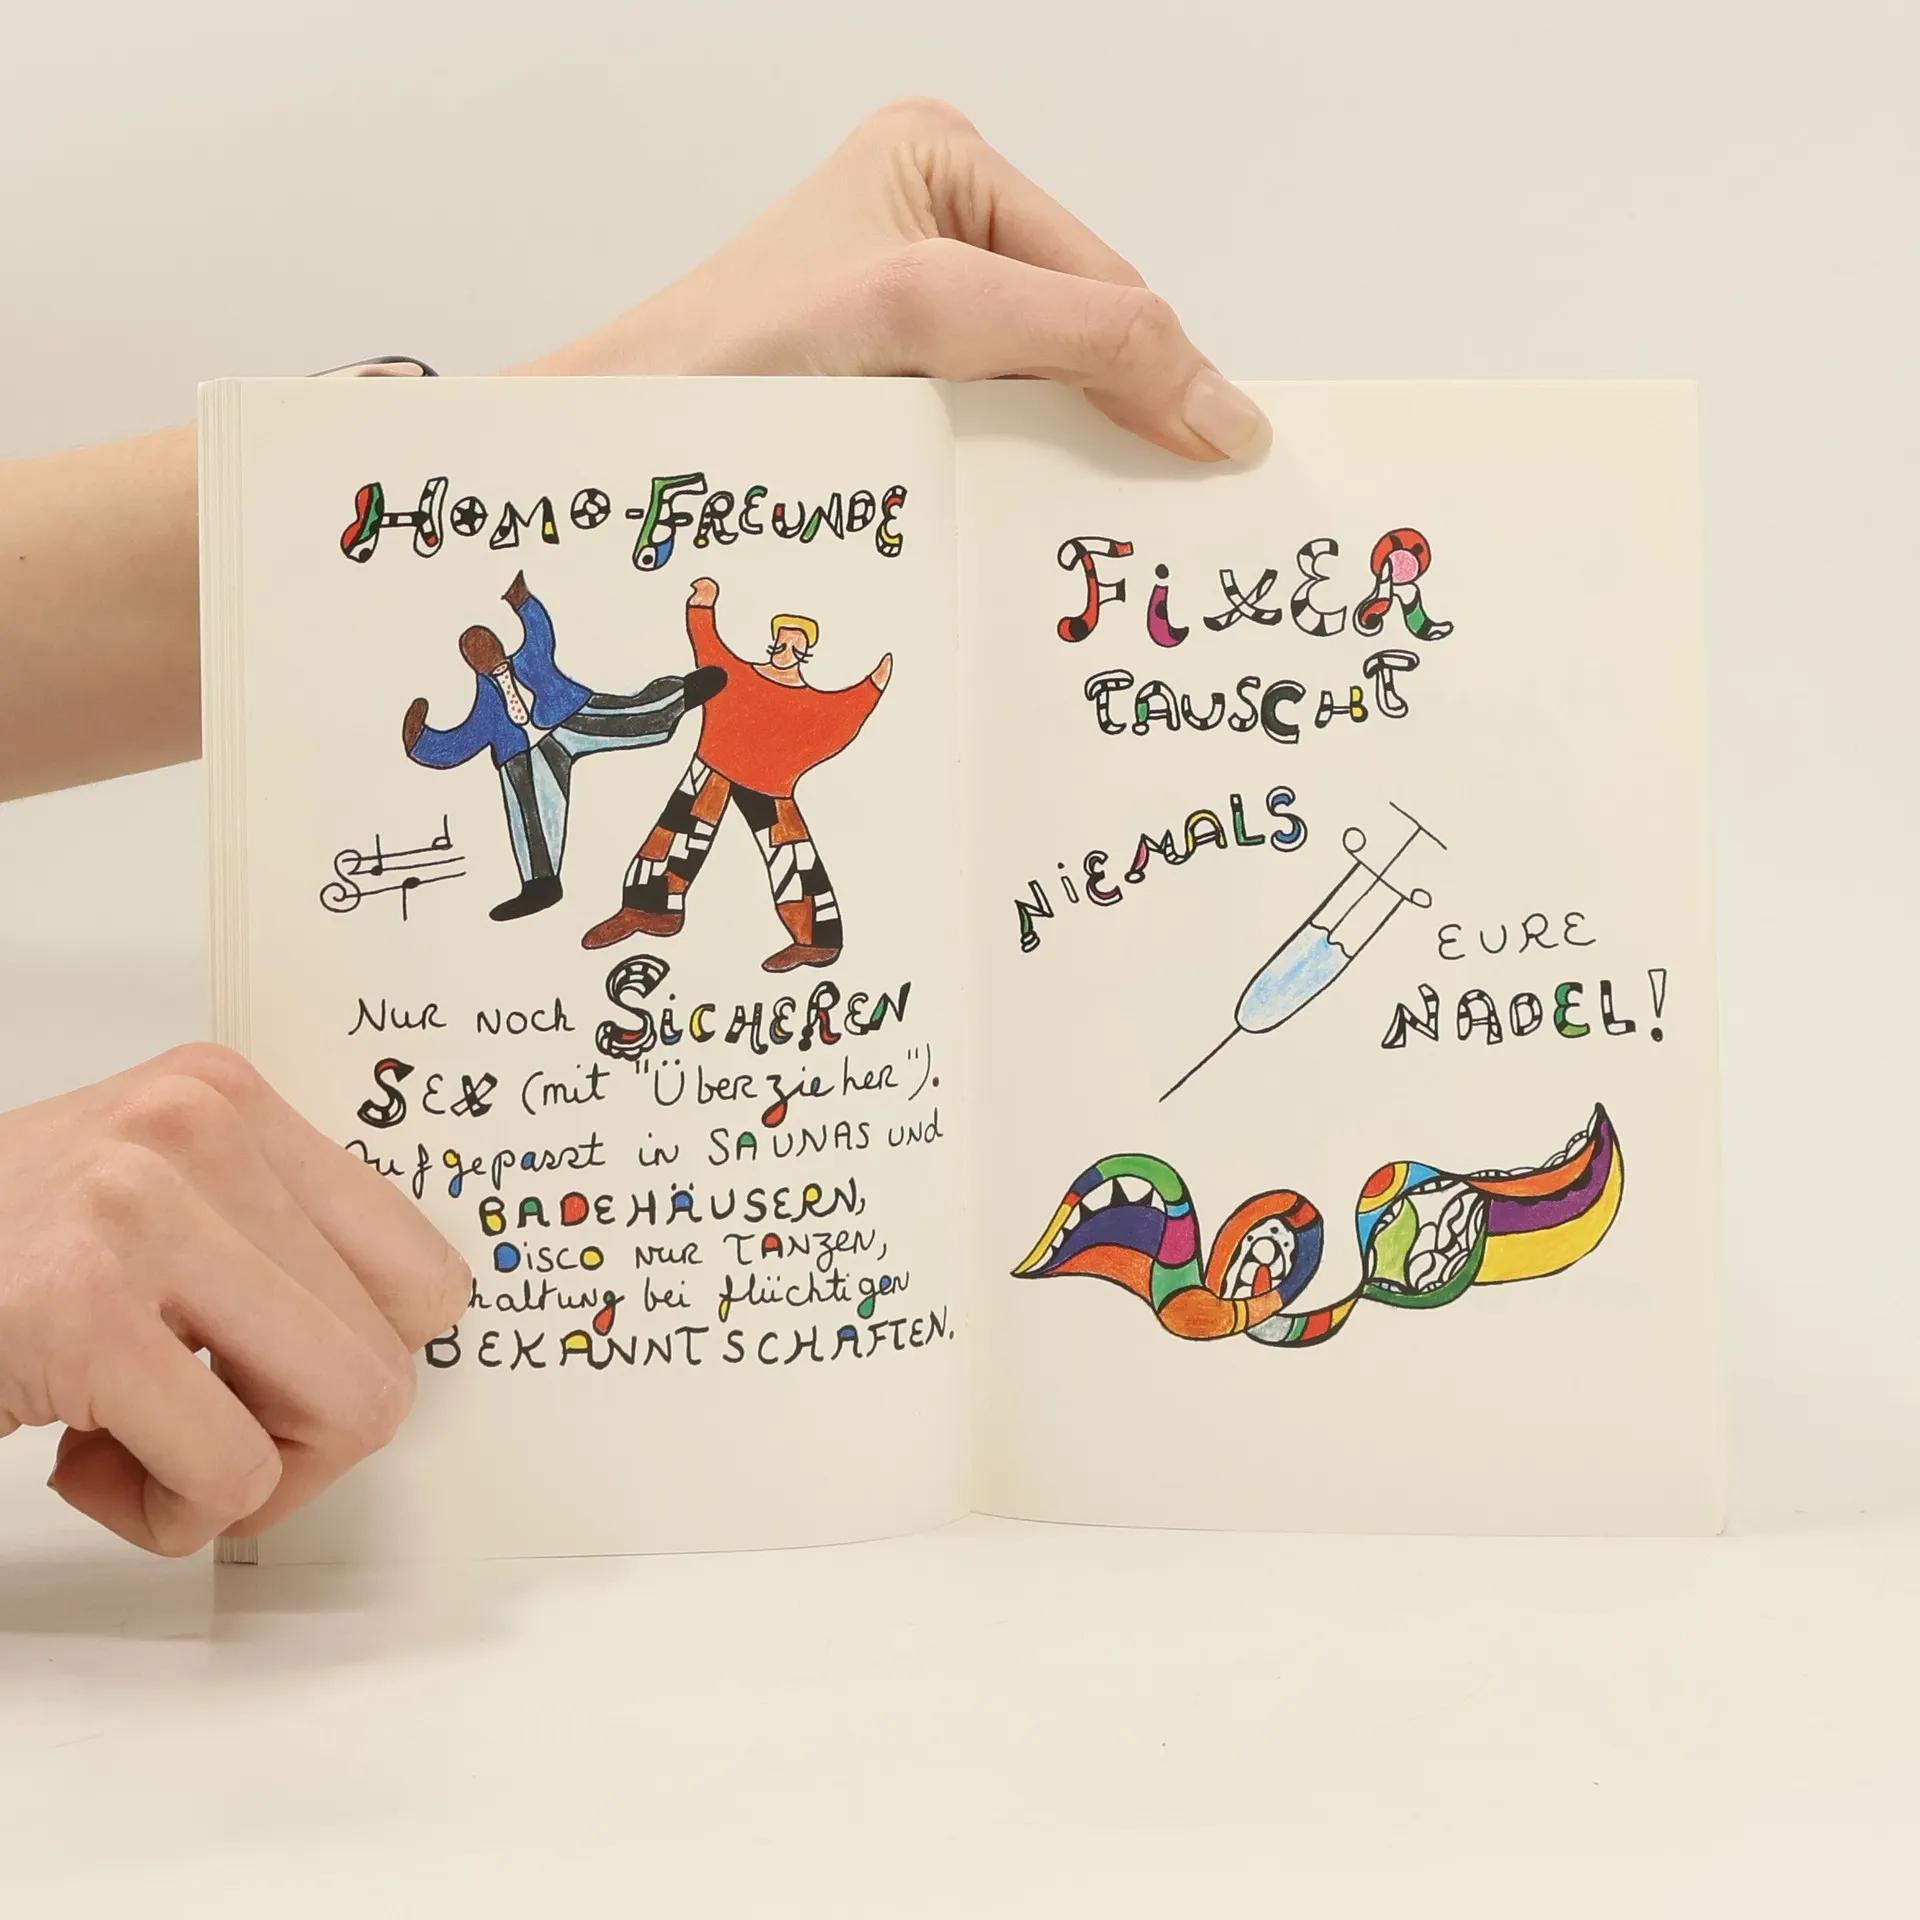 HOMO-FREUNDE
Nur noch SICHEREN
SEX (mit "Überzieher").
Aufgepasst in SAUNAS und
BADEHÄUSERN,
DISCO nur TANZEN,
bei flüchtigen
BEKANNTSCHAFTEN.
FiXER
TAUSCHT
NiEMALS
EURE
NADEL!